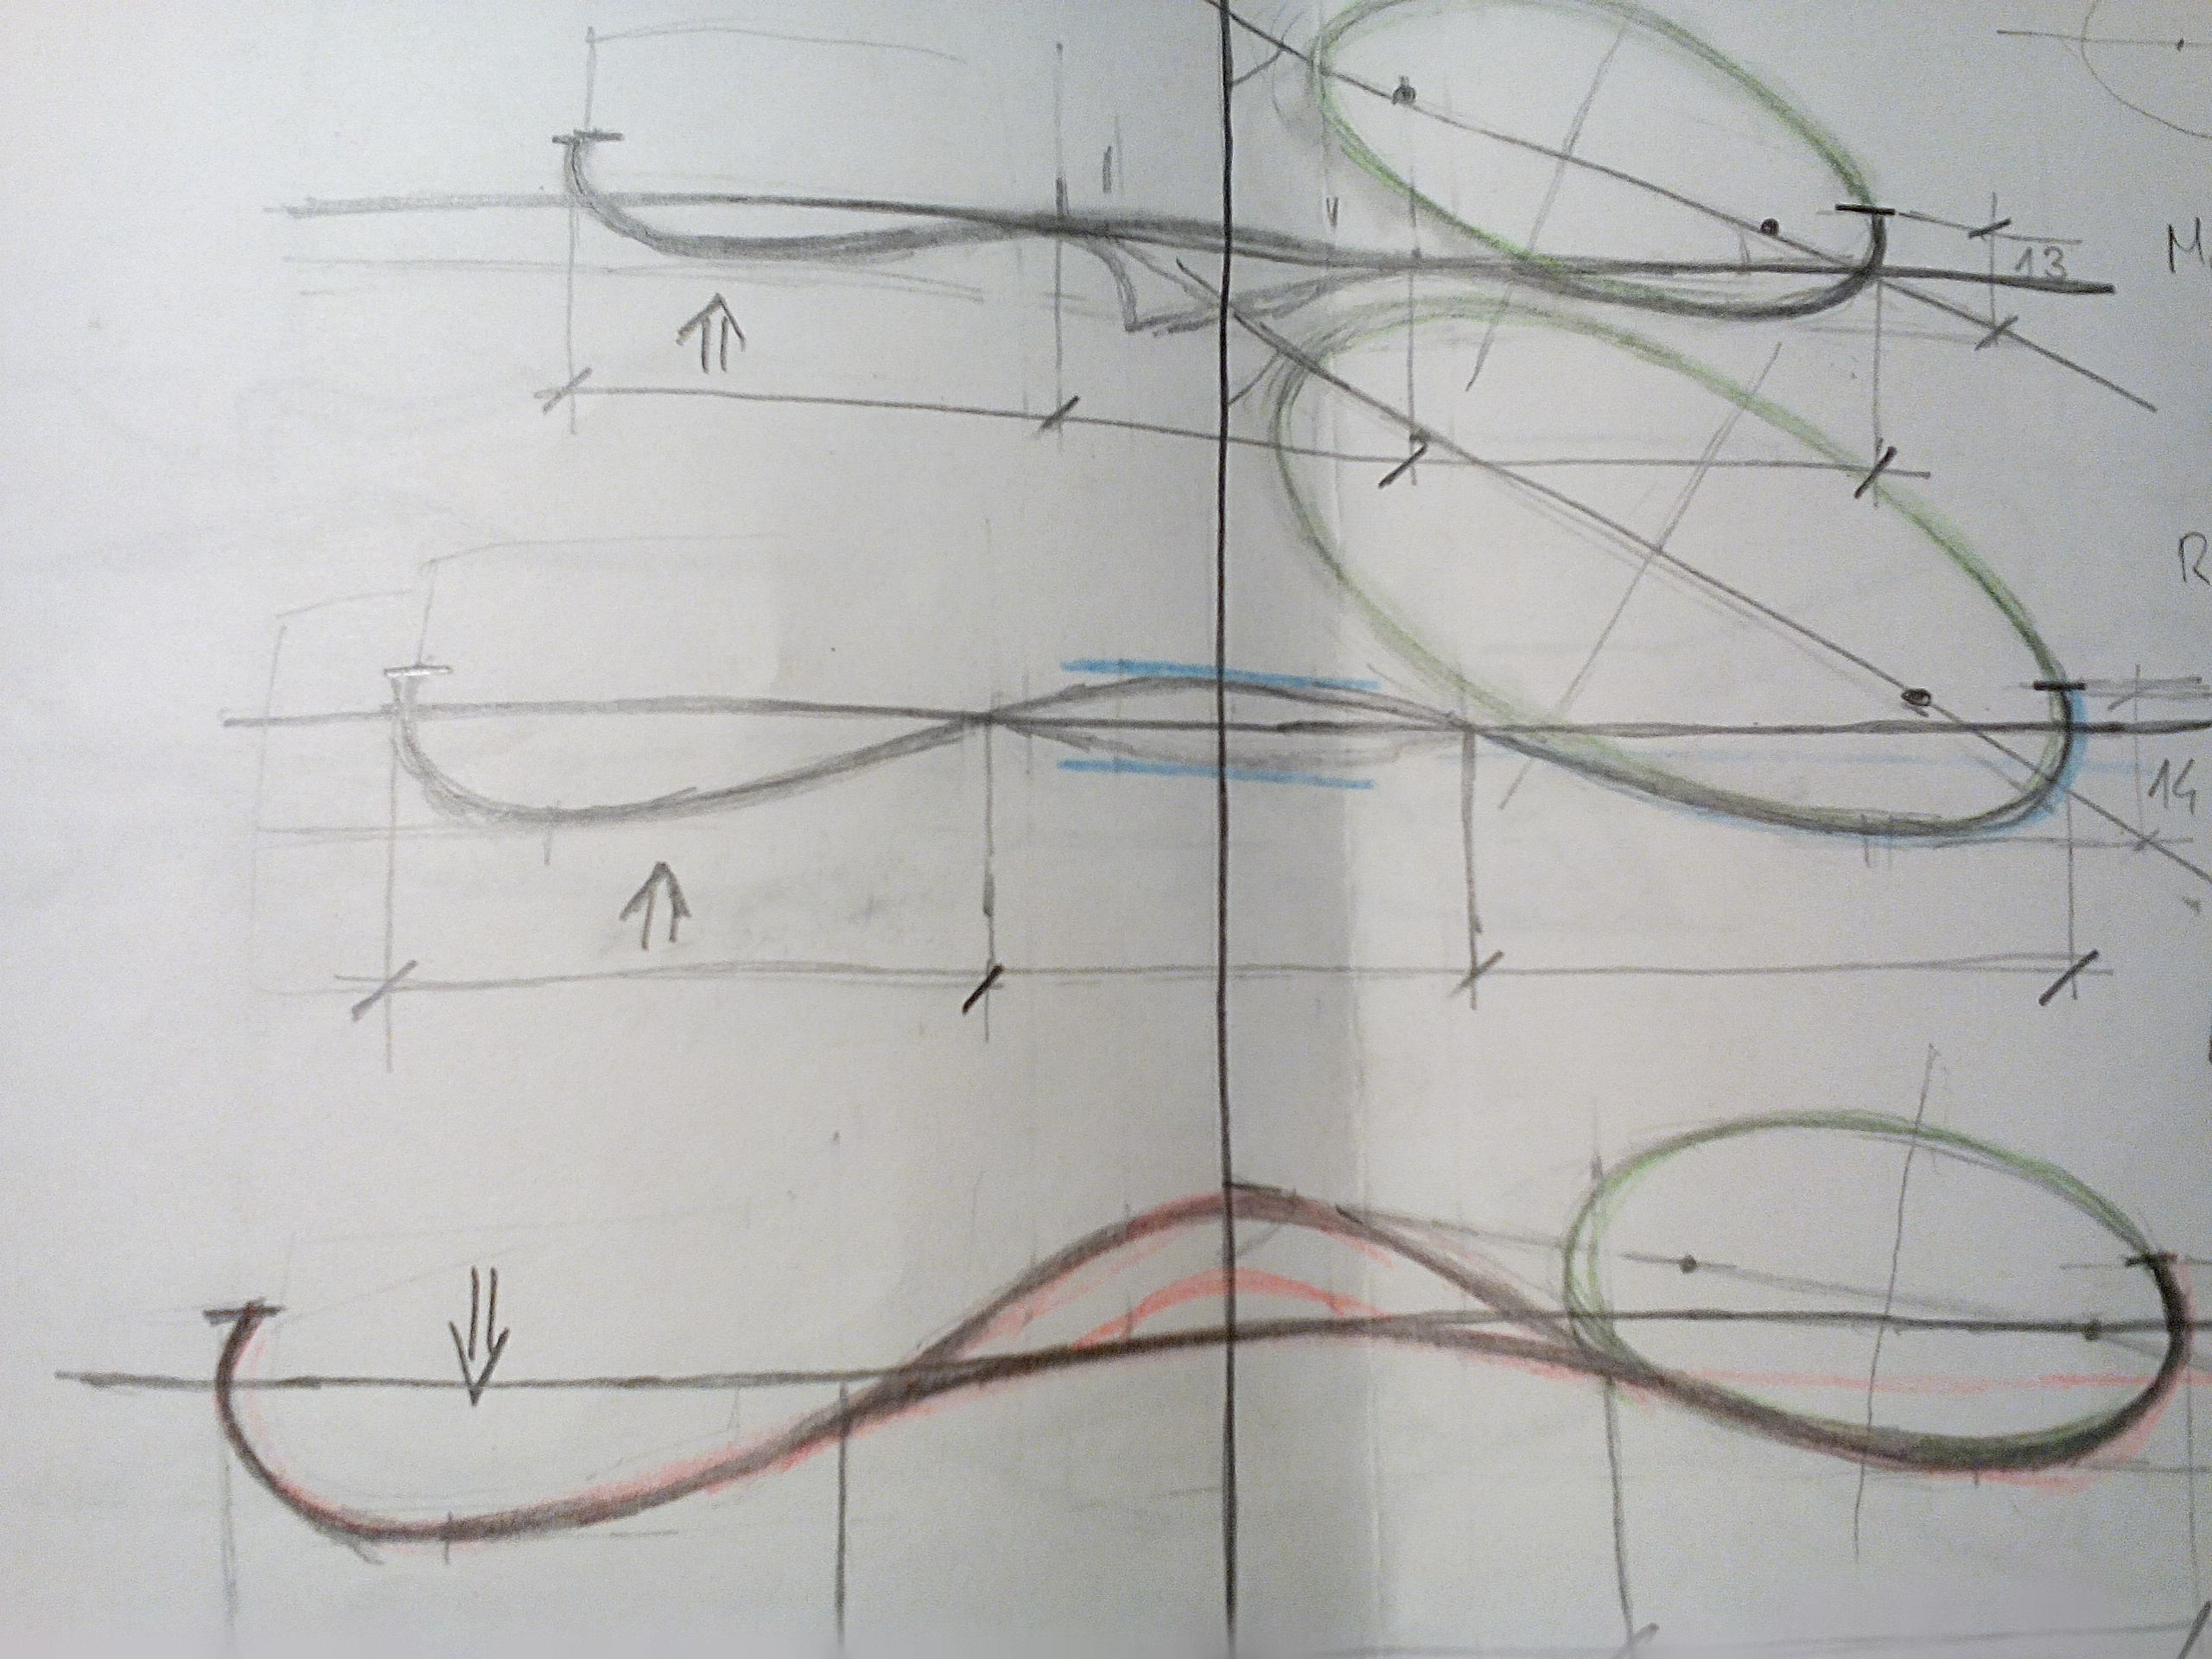 13
M
R
14